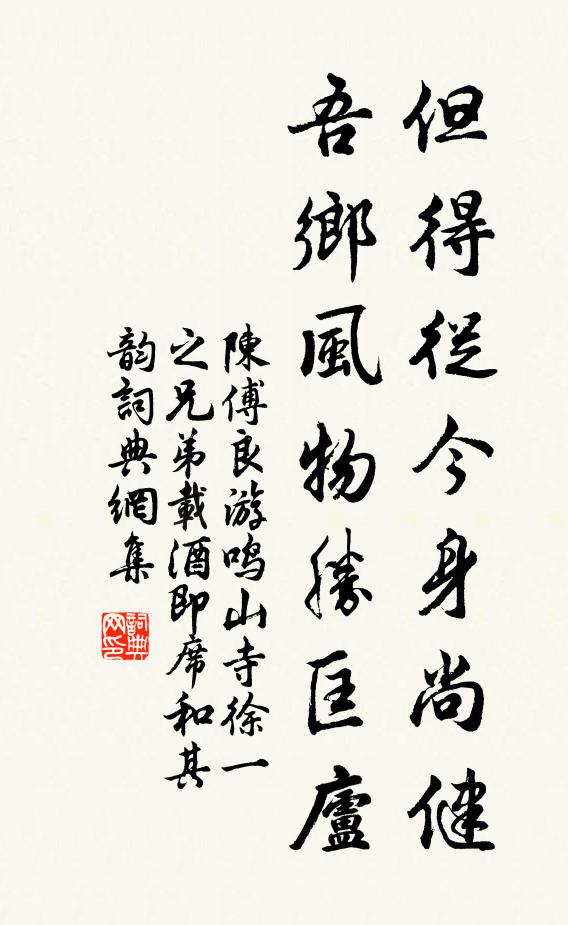 但得從今身尚健
吾鄉風物勝匡廬
陳傅良游鳴山寺徐一
之兄弟載酒即席和其
韵詞典網集
詞典网印